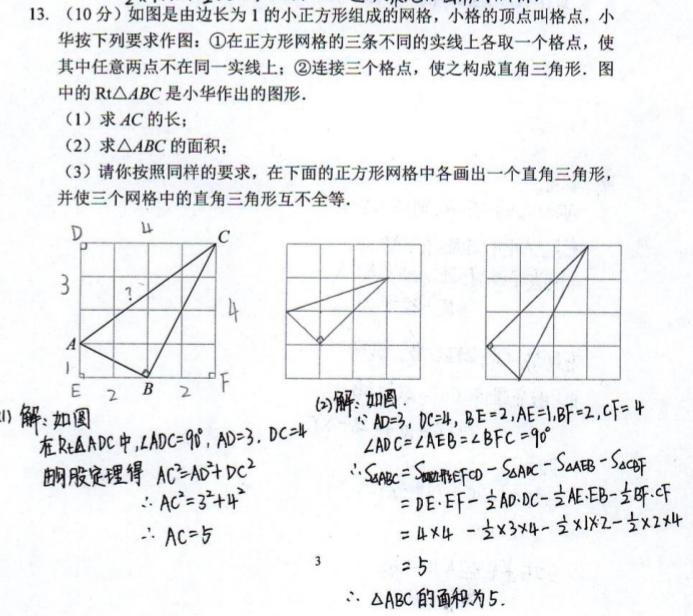 13. （10 分）如图是由边长为 1 的小正方形组成的网格，小格的顶点叫格点，小
华按下列要求作图：①在正方形网格的三条不同的实线上各取一个格点，使
其中任意两点不在同一实线上；②连接三个格点，使之构成直角三角形．图
中的 Rt△ABC 是小华作出的图形．
（1）求 AC 的长；
（2）求△ABC 的面积；
（3）请你按照同样的要求，在下面的正方形网格中各画出一个直角三角形，
并使三个网格中的直角三角形互不全等．
D 4 C
3 ? 4
A
1
E 2 B 2 F
1) 解：如图
在Rt△ADC中，∠ADC=90°，AD=3．DC=4
由勾股定理得 AC²=AD²+DC²
∴ AC²=3²+4²
∴ AC=5
(2)解：如图．
∵ AD=3，DC=4，BE=2，AE=1，BF=2，CF=4
∠ADC=∠AEB=∠BFC=90°
∴ S△ABC=SEFCD－S△ADC－S△AEB－S△CBF
=DE·EF－½AD·DC－½AE·EB－½BF·CF
=4×4 －½×3×4－½×1×2－½×2×4
=5
∴ △ABC的面积为5．
3